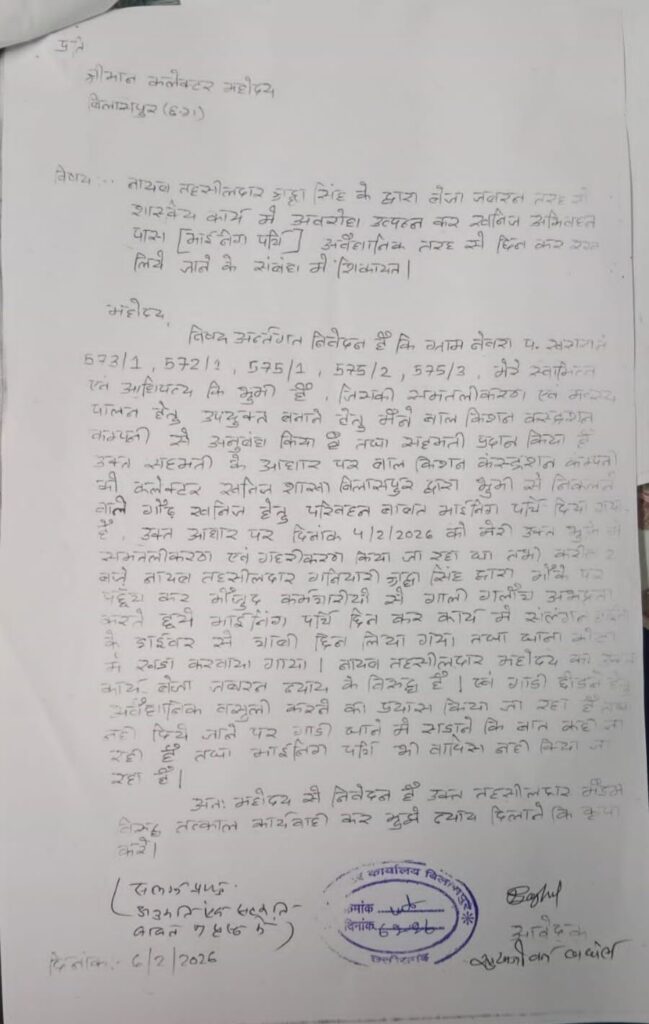 प्रति
श्रीमान कलेक्टर महोदय
बिलासपुर (छ.ग)
विषय :- नायब तहसीलदार श्रद्धा सिंह के द्वारा बेजा जबरन तरह से
शासकीय कार्य मे अवरोध उत्पन्न कर खनिज अभिवहन
पास [माईनिंग पर्ची] अवैधानिक तरह से छिन कर रख
लिये जाने के संबंध मे शिकायत।
महोदय,
विषय अन्तर्गत निवेदन है कि ग्राम नेवरा प.
573/1, 572/1, 575/1, 575/2, 575/3, मेरे स्वामित्व
एवं आधिपत्य कि भुमी है, जिसकी समतलीकरण एवं मत्स्य
पालन हेतु उपयुक्त बनाने हेतु मैंने बाल किशन कंस्ट्रक्शन
कम्पनी से अनुबंध किया है तथा सहमती प्रदान किया है
उक्त सहमती के आधार पर बाल किशन कंस्ट्रक्शन कम्पनी
को कलेक्टर खनिज शाखा बिलासपुर द्वारा भुमी से निकलने
वाले गौंण खनिज हेतु परिवहन बावत माईनिंग पर्ची दिया गया
है, उक्त आधार पर दिनांक 4/2/2026 को मेरी उक्त भुमि का
समतलीकरण एवं गहरीकरण किया जा रहा था तभी करीब 2
बजे नायब तहसीलदार गनियारी श्रद्धा सिंह द्वारा मौके पर
पहुँच कर मौजुद कर्मचारीयो से गाली गलौच अभद्रता
करते हुये माईनिंग पर्ची छिन कर कार्य मे संलग्न
के ड्राईवर से चाबी छिन लिया गया तथा थाना कोटा
में खडा करवाया गया। नायब तहसीलदार महोदय का उक्त
कार्य बेजा जबरन न्याय के विरुद्ध है। एवं गाडी छोडने हेतु
अवैधानिक वसुली करने का प्रयास किया जा रहा है तथा
नही दिये जाने पर गाडी थाने मे सडाने कि बात कही जा
रही है तथा माईनिंग पर्ची भी वापिस नही किया जा
रहा है।
अतः महोदय से निवेदन है उक्त तहसीलदार मैडम
विरुद्ध तत्काल कार्यवाही कर मुझे न्याय दिलाने कि कृपा
करें।
अनुमति एवं सहमति
बावत
कार्यालय बिलासपुर
क्रमांक
दिनांक 6-2-26
छत्तीसगढ़
आवेदक
दिनांक:- 6/2/2026